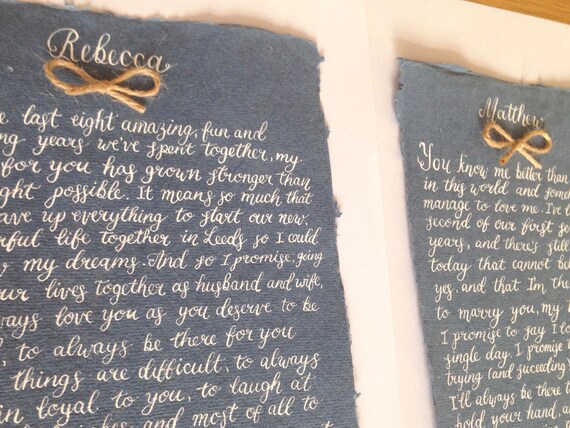 Rebecca
last eight amazing, fun and
years we've spent together, my
for you has grown stronger than
possible. It means so much that
up everything to start our new,
life together in Leeds so I could
my dreams. And so I promise, going
lives together as husband and wife,
love you as you deserve to be
to always be there for you
things are difficult, to always
loyal to you, to laugh at
and most of all to
Matthew
You know me better than
in this world and
manage to love me. I've
second of our first
years, and there's still
today that cannot
yes, and that I'm the
to marry you, my
I promise to say I
single day. I promise
trying (and succeeding)
I'll always be there
hold your hand,